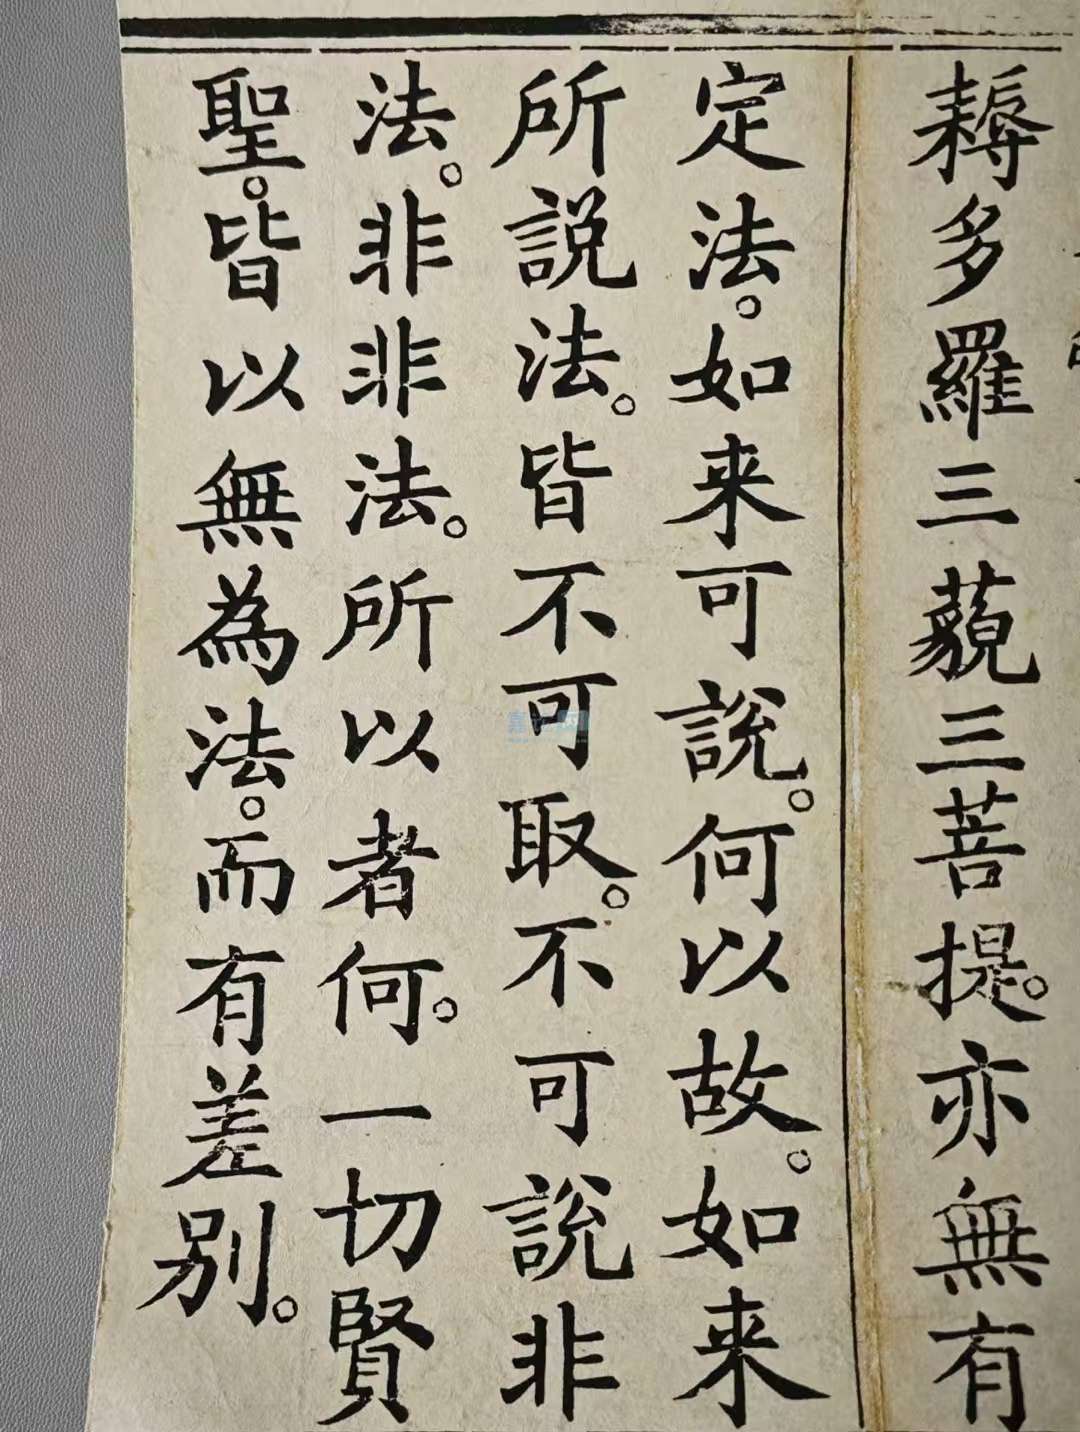 耨多羅三藐三菩提。亦無有
定法。如来可說。何以故。如来
所說法。皆不可取。不可說非
法。非非法。所以者何。一切賢
聖。皆以無為法。而有差别。